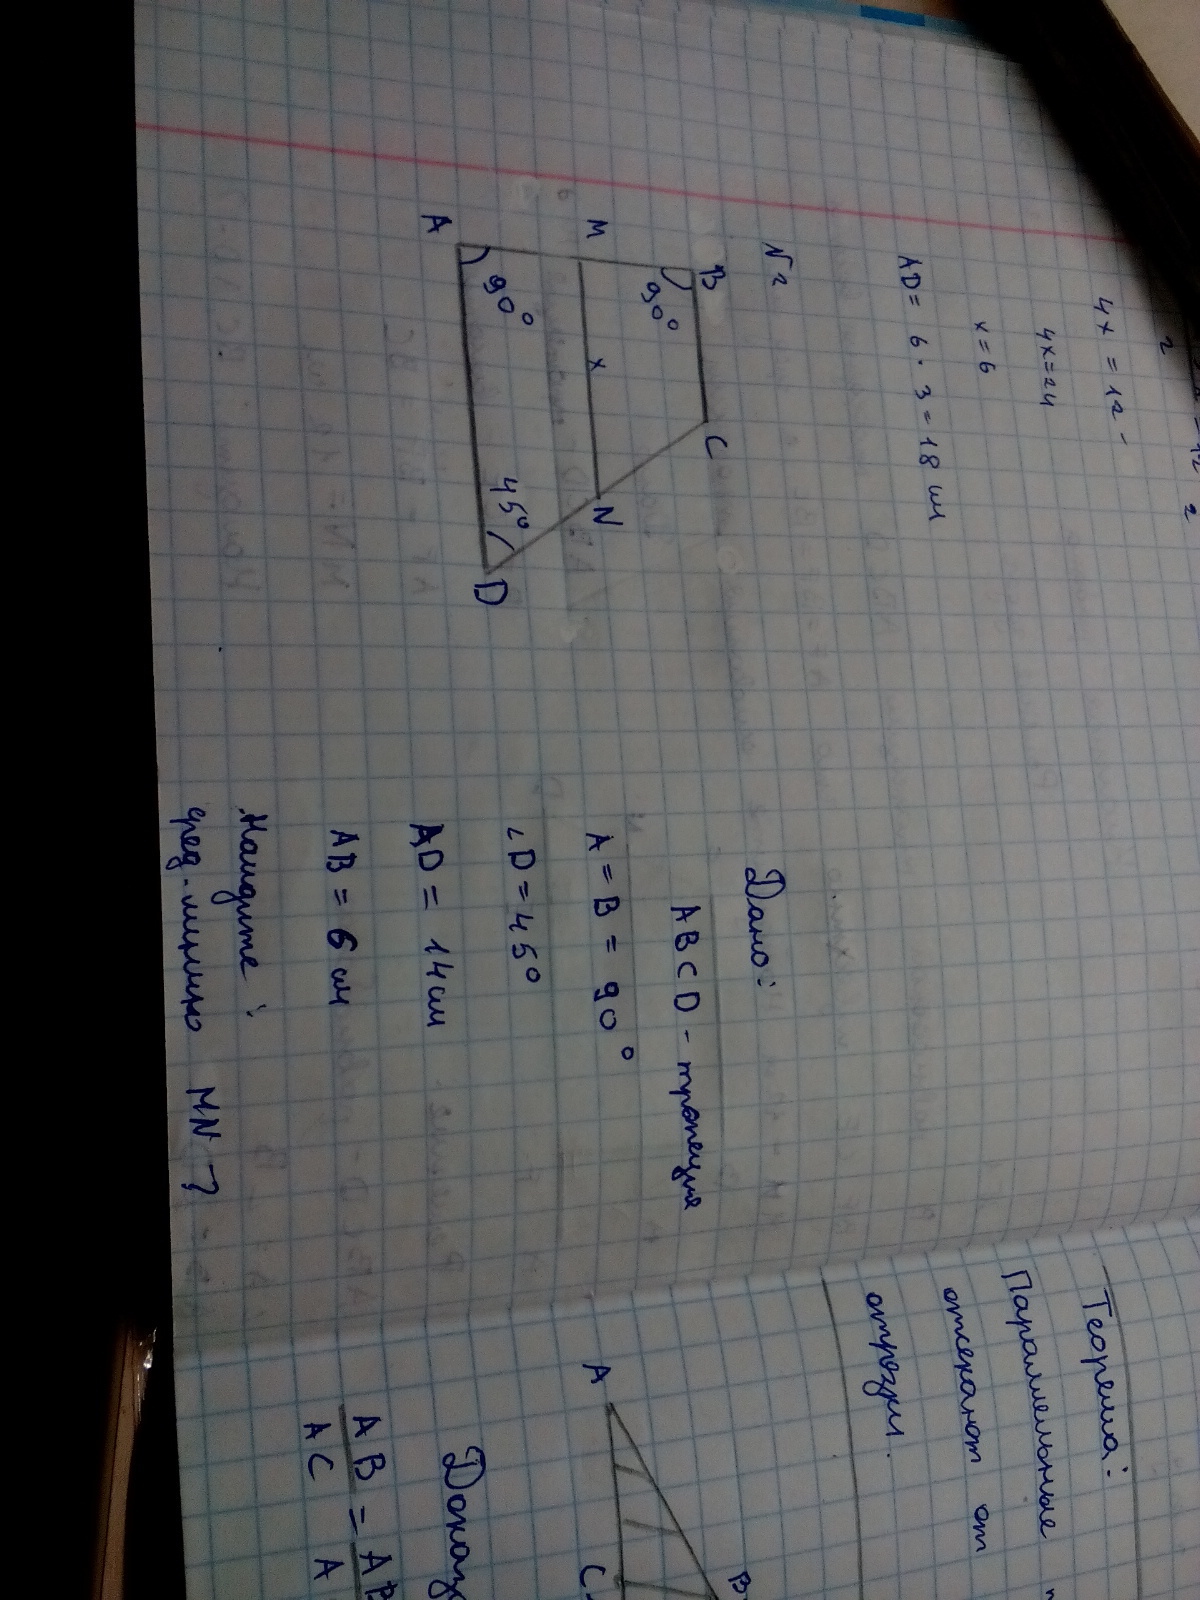 4x = 12 ·
2
4x=24
x=6
AD= 6 · 3 = 18 см
N 2
B
90°
C
M
x
N
90°
45°
A
D
Дано:
ABCD - трапеция
A = B = 90°
∠D = 45°
AD = 14 см
AB = 6 см
Найдите:
сред. линию MN ?
Теорема:
Параллельные
отсекают от
отрезки.
A
B
C
AB = AB
AC A